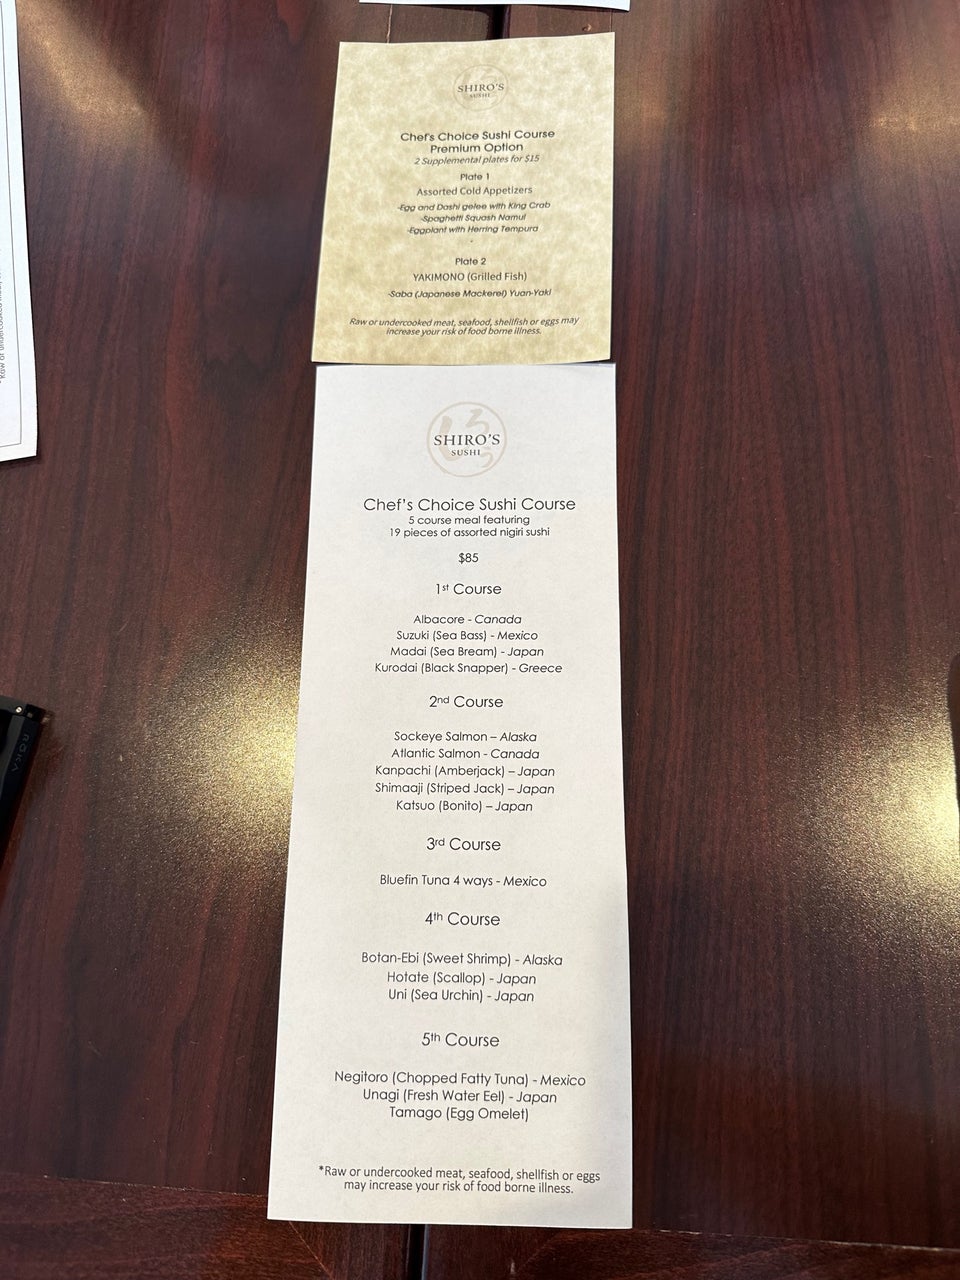 SHIRO'S
SUSHI
Chef's Choice Sushi Course
Premium Option
2 Supplemental plates for $15
Plate 1
Assorted Cold Appetizers
-Egg and Dashi gelee with King Crab
-Spaghetti Squash Namul
-Eggplant with Herring Tempura
Plate 2
YAKIMONO (Grilled Fish)
-Saba (Japanese Mackerel) Yuan-Yaki
Raw or undercooked meat, seafood, shellfish or eggs may
increase your risk of food borne illness.
SHIRO'S
SUSHI
Chef's Choice Sushi Course
5 course meal featuring
19 pieces of assorted nigiri sushi
$85
1st Course
Albacore - Canada
Suzuki (Sea Bass) - Mexico
Madai (Sea Bream) - Japan
Kurodai (Black Snapper) - Greece
2nd Course
Sockeye Salmon – Alaska
Atlantic Salmon - Canada
Kanpachi (Amberjack) – Japan
Shimaaji (Striped Jack) – Japan
Katsuo (Bonito) – Japan
3rd Course
Bluefin Tuna 4 ways - Mexico
4th Course
Botan-Ebi (Sweet Shrimp) - Alaska
Hotate (Scallop) - Japan
Uni (Sea Urchin) - Japan
5th Course
Negitoro (Chopped Fatty Tuna) - Mexico
Unagi (Fresh Water Eel) - Japan
Tamago (Egg Omelet)
*Raw or undercooked meat, seafood, shellfish or eggs
may increase your risk of food borne illness.